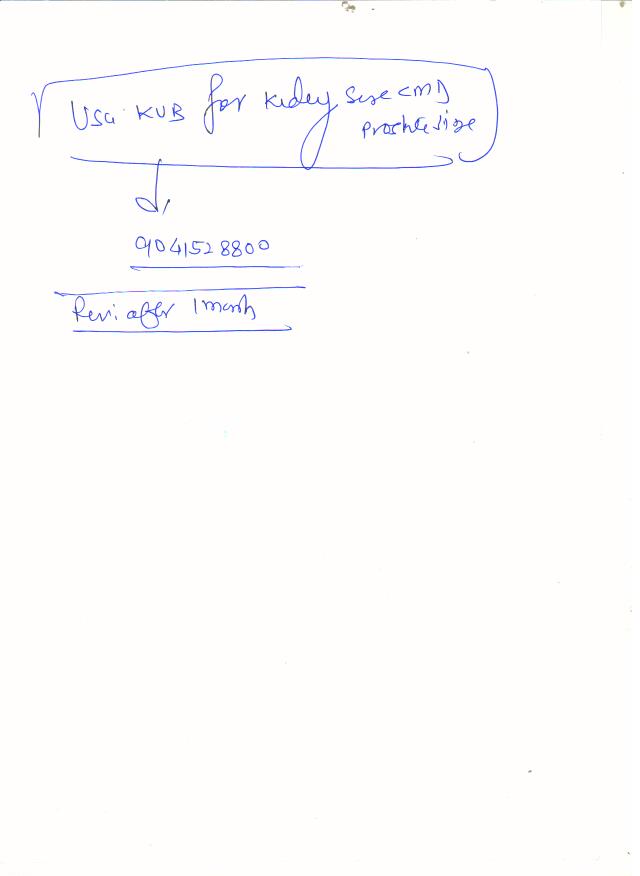 USG KUB for Kidey Size CMD
Prostate size
9041528800
Revi. after 1 month